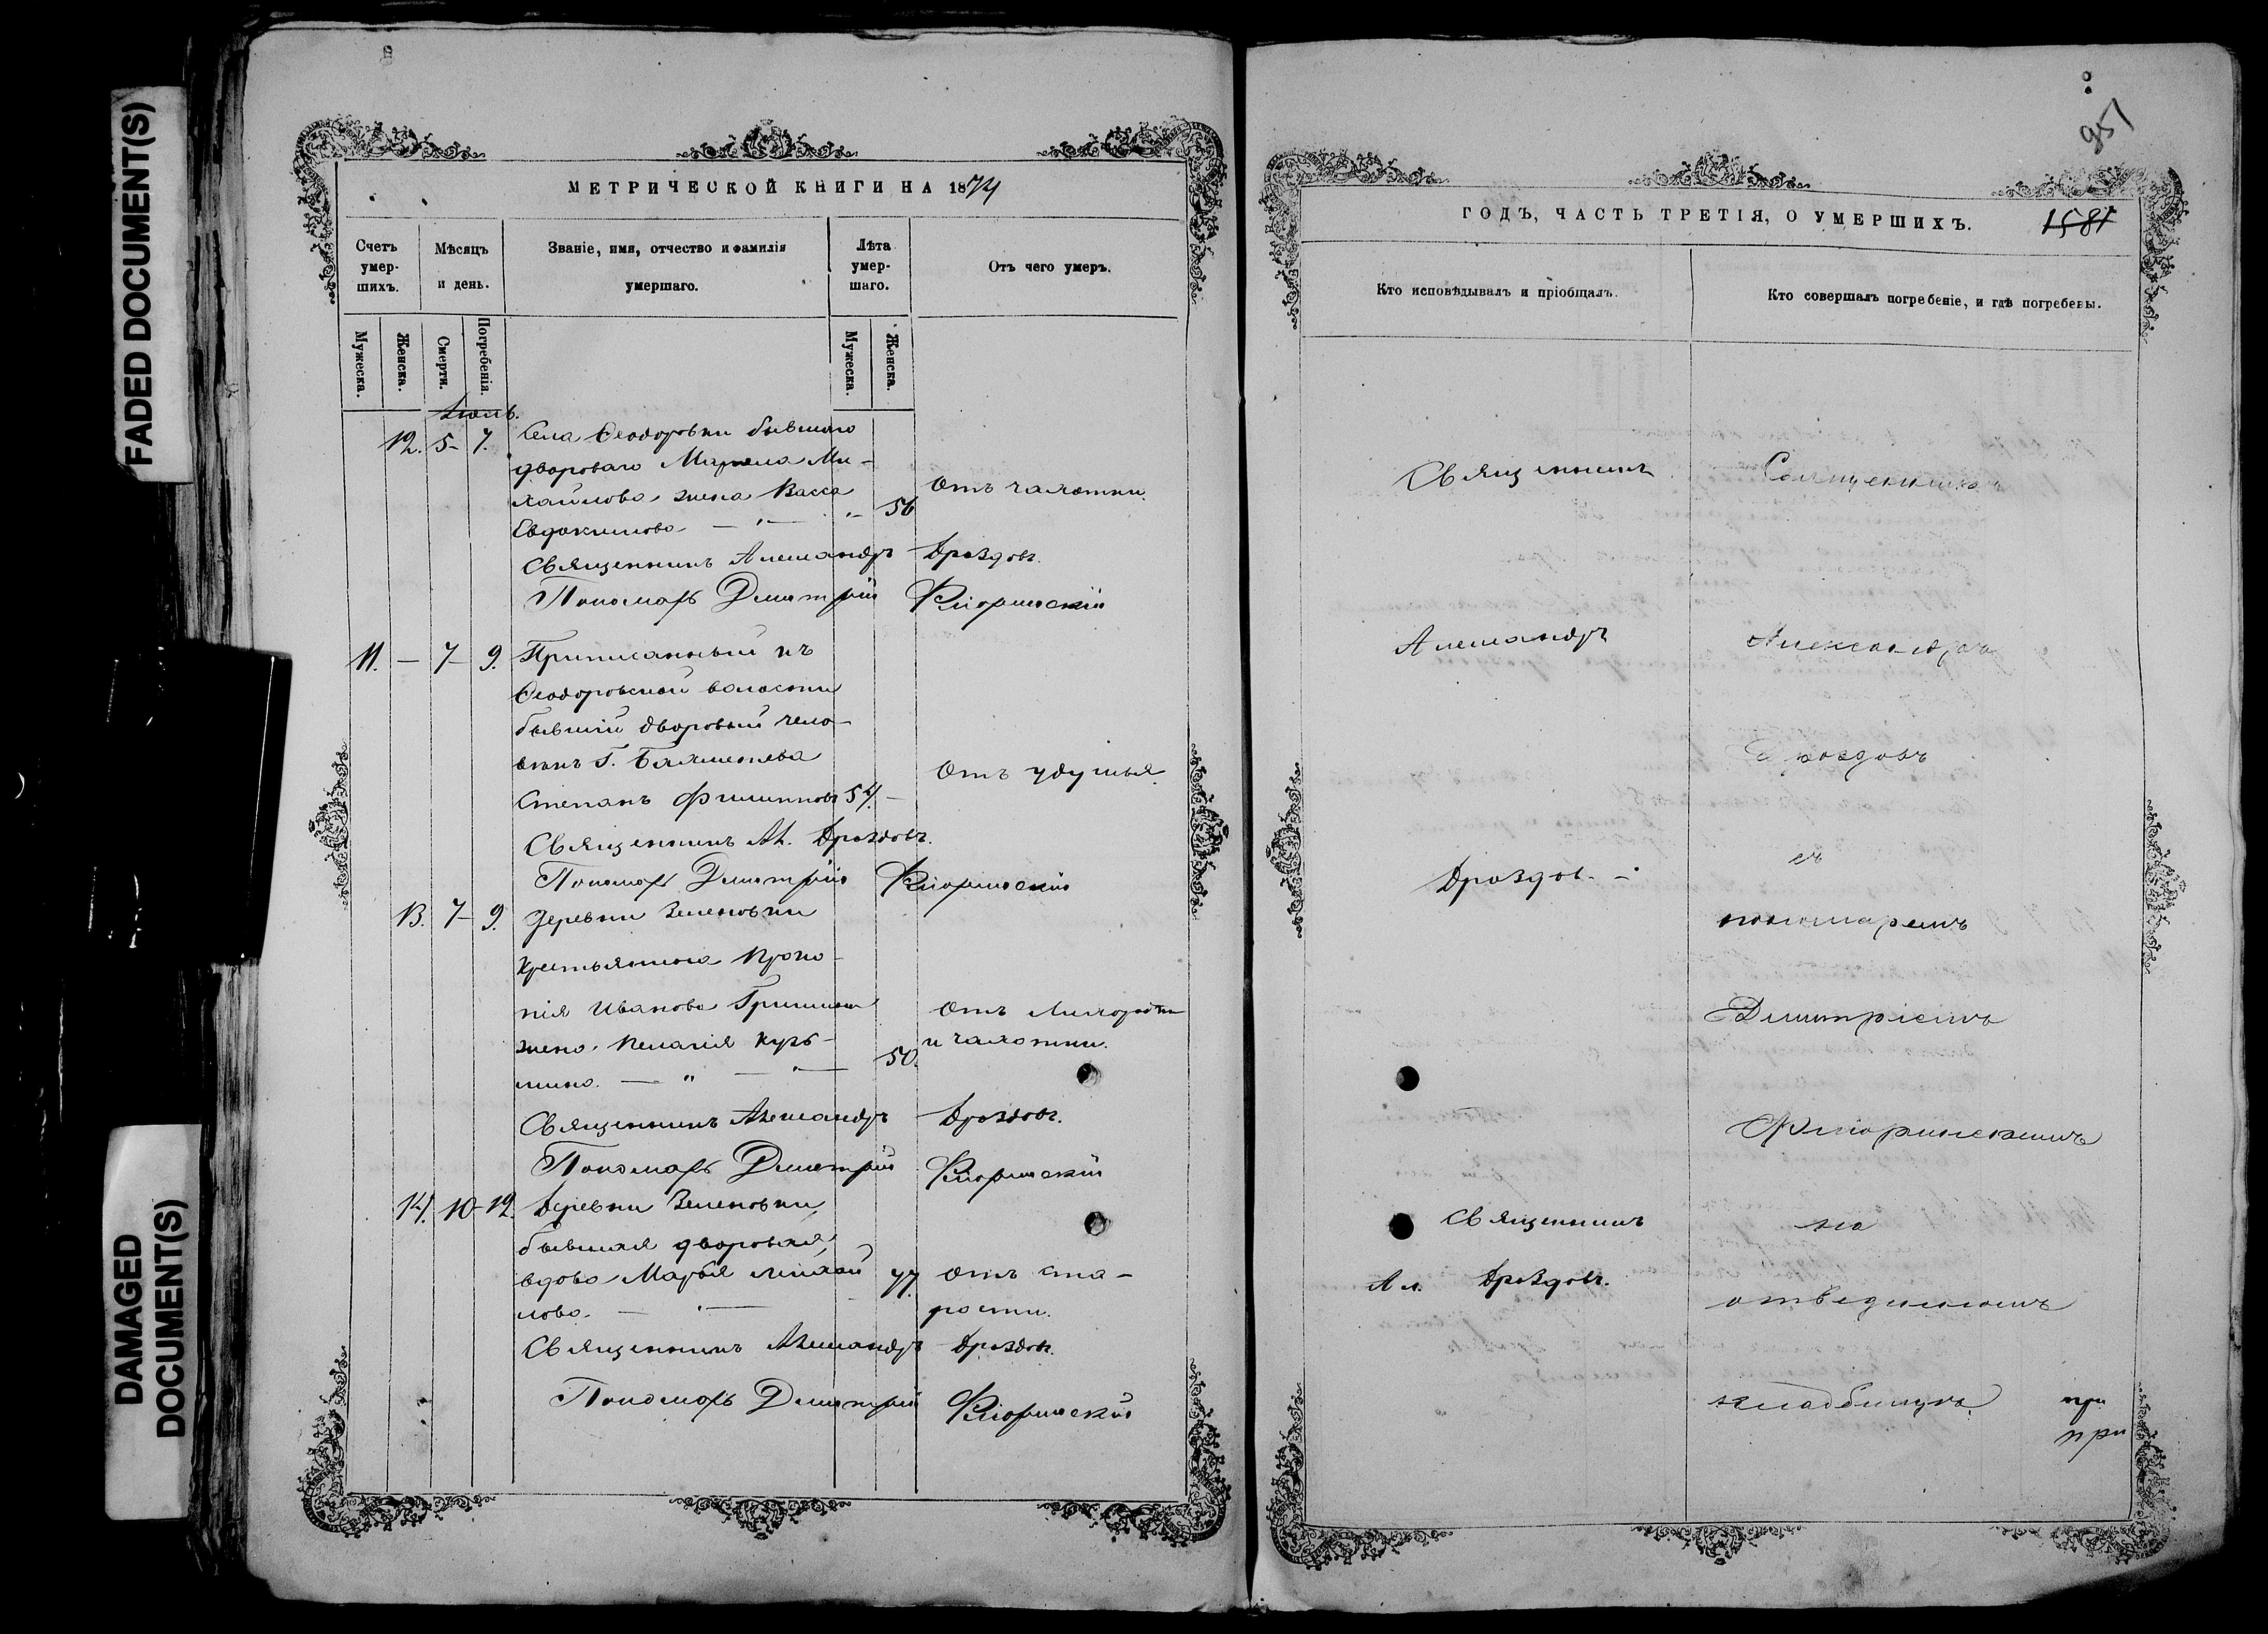 FADED DOCUMENT(S)
DAMAGED
DOCUMENT(S)
МЕТРИЧЕСКОЙ КНИГИ НА 1874
Счетъ умер- шихъ.
Мѣсяцъ и день.
Званіе, имя, отчество и фамилія умершаго.
Лѣта умер- шаго.
Отъ чего умеръ.
Мужеска.
Женска.
Смерти.
Погребенія.
Мужеска.
Женска.
12. 5- 7. Села Ѳеодоровки бывшаго
двороваго Ми-
хайлова жена Васса
Отъ чахотки.
Евдокимова 56
Священникъ Александръ Дроздовъ.
Пономарь Димитрій Флоринскій
11. — 7- 9. Приписанный къ
Ѳеодоровской волости
бывшій дворовый чело-
вѣкъ Г.
Отъ удушья
Степанъ Филипповъ 54. —
Священникъ Ал. Дроздовъ.
Пономарь Димитрій Флоринскій
13. 7- 9. Деревни Зеленовки
крестьянина Проко-
пія Иванова
Отъ лихорадки
жена Пелагія Кузь-
и чахотки.
мина. — " — " — 50.
Священникъ Александръ Дроздовъ.
Пономарь Димитрій Флоринскій
14. 10- 12. Деревни Зеленовки
бывшая дворовая
вдова Марья Михай 77. Отъ ста-
лова. — рости.
Священникъ Александръ Дроздовъ.
Пономарь Димитрій Флоринскій
951
ГОДЪ, ЧАСТЬ ТРЕТІЯ, О УМЕРШИХЪ. 1581
Кто исповѣдывалъ и пріобщалъ.
Кто совершалъ погребеніе, и гдѣ погребены.
Священникъ
Александръ
Дроздовъ. -
Священникъ
Ал. Дроздовъ.
Священникъ
Александръ
Дроздовъ
съ
пономаремъ
Димитріемъ
Флоринскимъ
на
отведенномъ
кладбищѣ
при
при